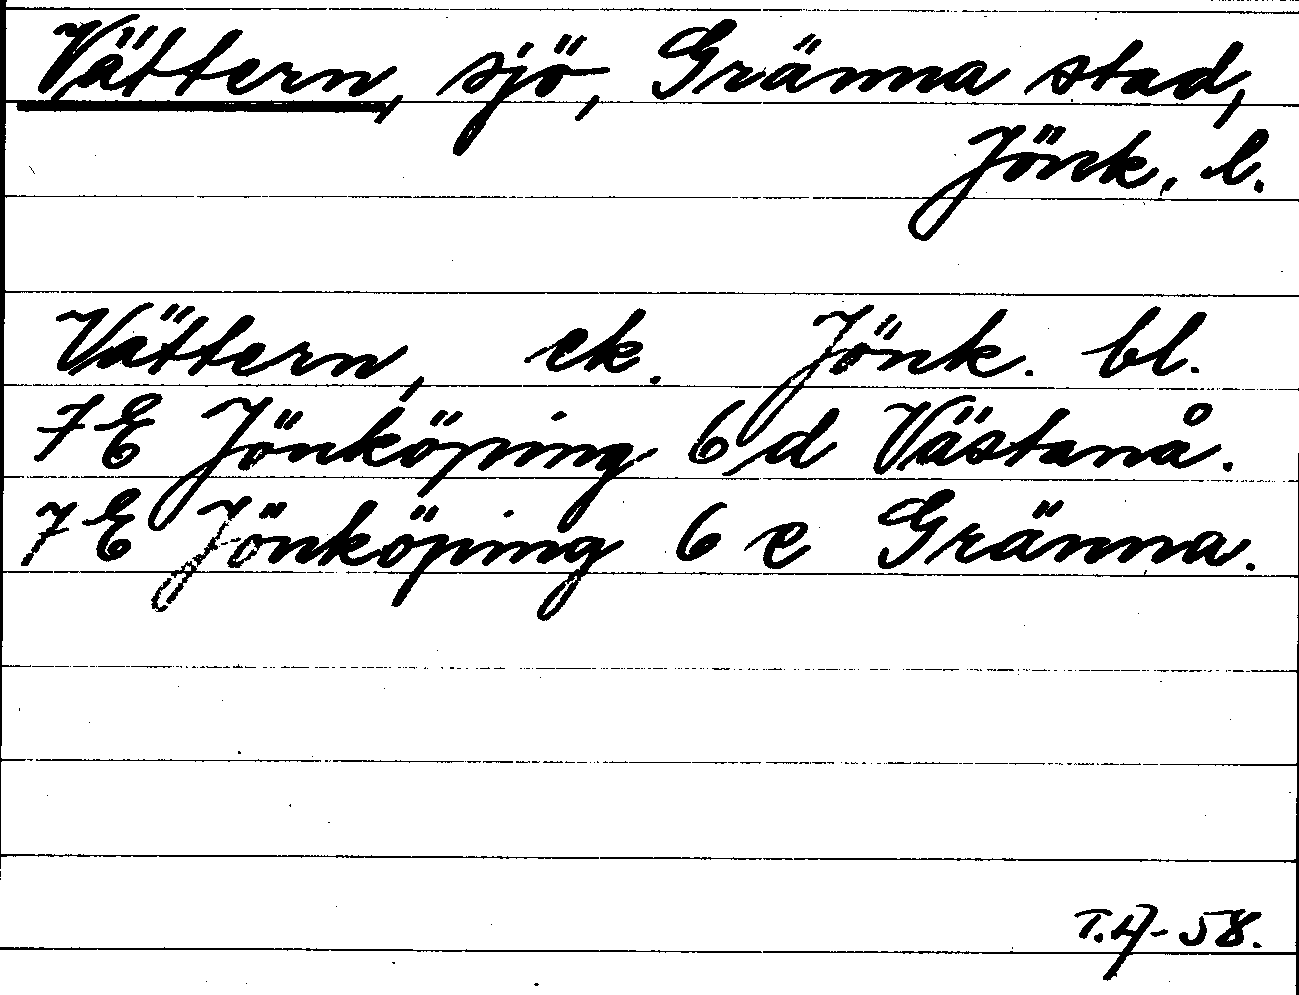 Vättern, sjö, Gränna stad,
Jönk. l.
Vättern, ek. Jönk. bl.
7E Jönköping 6 d Västanå.
7E Jönköping 6 e Gränna.
58.